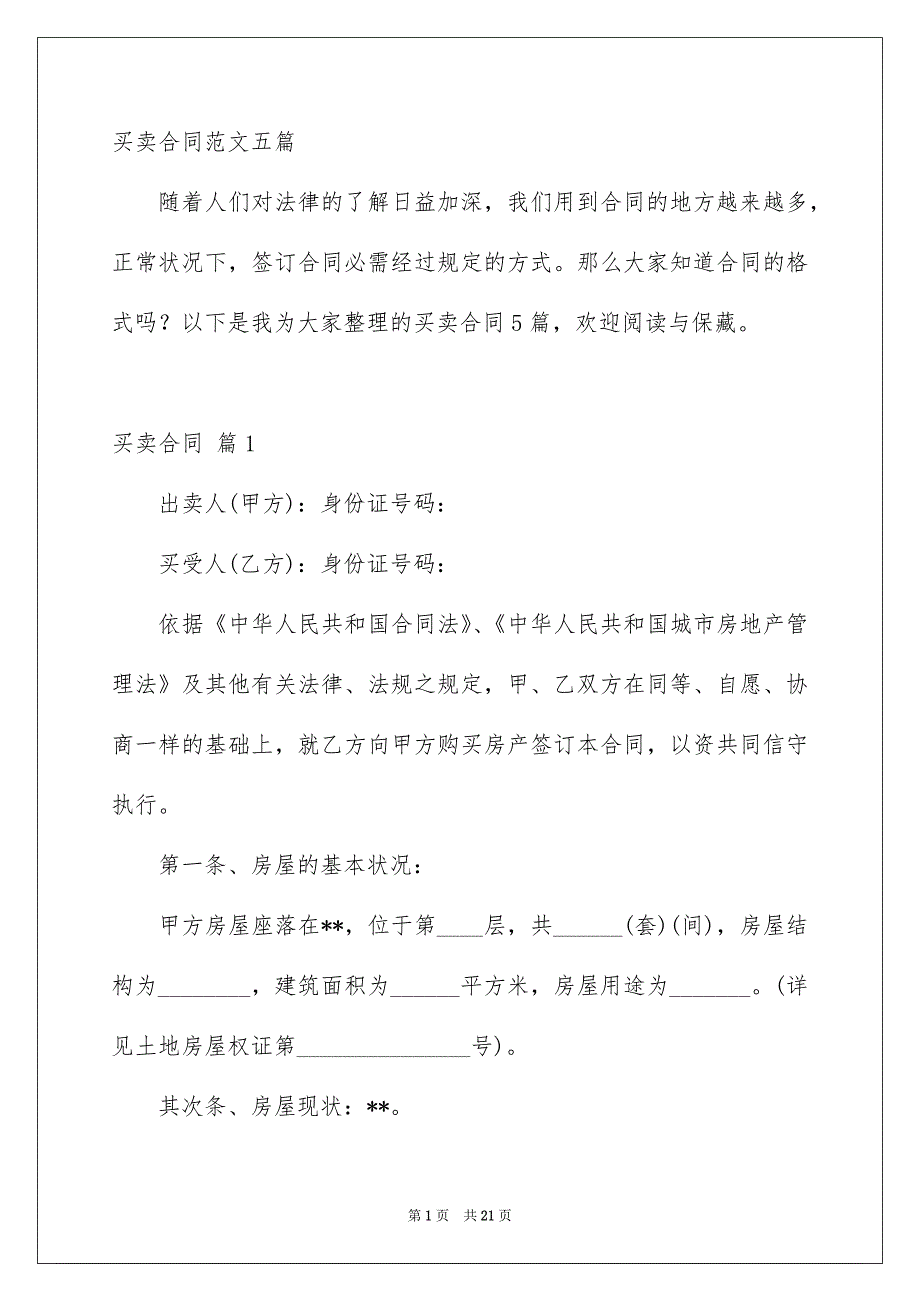 买卖合同范文五篇
随着人们对法律的了解日益加深，我们用到合同的地方越来越多，
正常状况下，签订合同必需经过规定的方式。那么大家知道合同的格
式吗？以下是我为大家整理的买卖合同5篇，欢迎阅读与保藏。
买卖合同 篇1
出卖人(甲方)：身份证号码：
买受人(乙方)：身份证号码：
依据《中华人民共和国合同法》、《中华人民共和国城市房地产管
理法》及其他有关法律、法规之规定，甲、乙双方在同等、自愿、协
商一样的基础上，就乙方向甲方购买房产签订本合同，以资共同信守
执行。
第一条、房屋的基本状况：
甲方房屋座落在**，位于第____层，共______(套)(间)，房屋结
构为________，建筑面积为______平方米，房屋用途为_______。(详
见土地房屋权证第_______________号)。
其次条、房屋现状：**。
第1页 共21页